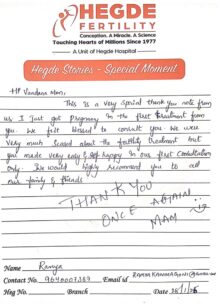 HEGDE
FERTILITY
Conception. A Miracle. A Science
Touching Hearts of Millions Since 1977
A Unit of Hegde Hospital
Hegde Stories - Special Moment
Hi Vandana Mam,
This is a very special thank you note from
us. I just got pregnancy in the first treatment from
you. We felt blessed to consult you. We were
very much scared about the fertility treatment but
you made very easy & happy in our first consultation
only. We would highly recommend you to all
our family & friends
THANK YOU
ONCE AGAIN
MAM
Name Ramya
Contact No: Email id
Hng No. Branch Date